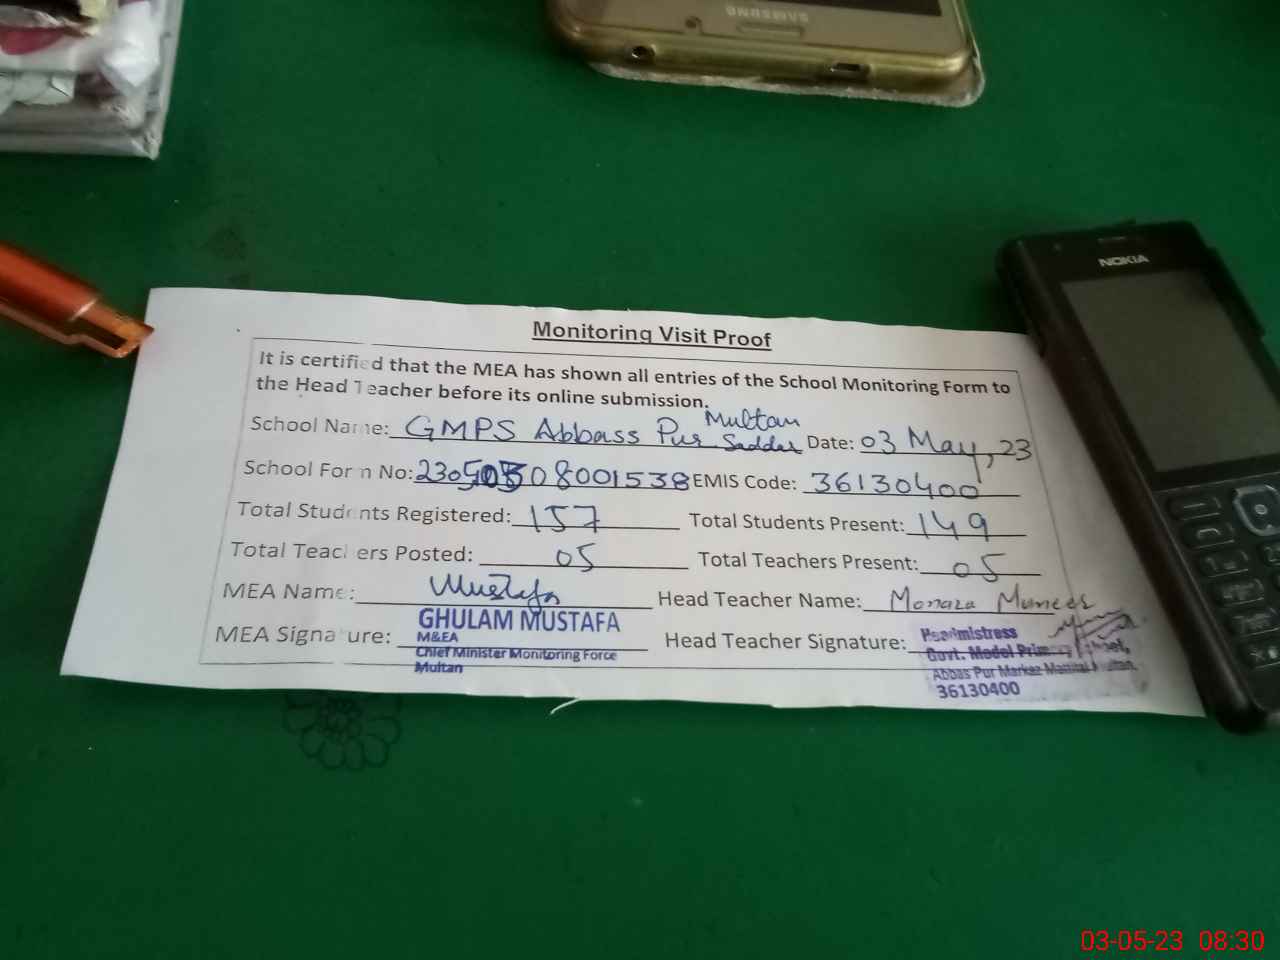 SAMSUNG
NOKIA
Monitoring Visit Proof
It is certified that the MEA has shown all entries of the School Monitoring Form to
the Head Teacher before its online submission.
School Name: GMPS Abbass Pur Multan Saddar Date: 03 May, 23
School Form No: 230508001538 EMIS Code: 36130400
Total Students Registered: 157 Total Students Present: 149
Total Teachers Posted: 05 Total Teachers Present: 05
MEA Name: Mustafa Head Teacher Name: Monaza Muneer
MEA Signature: Head Teacher Signature:
GHULAM MUSTAFA
M&EA
Chief Minister Monitoring Force
Multan
Headmistress
Govt. Model Primary School,
Abbas Pur Markaz Multan.
36130400
03-05-23 08:30